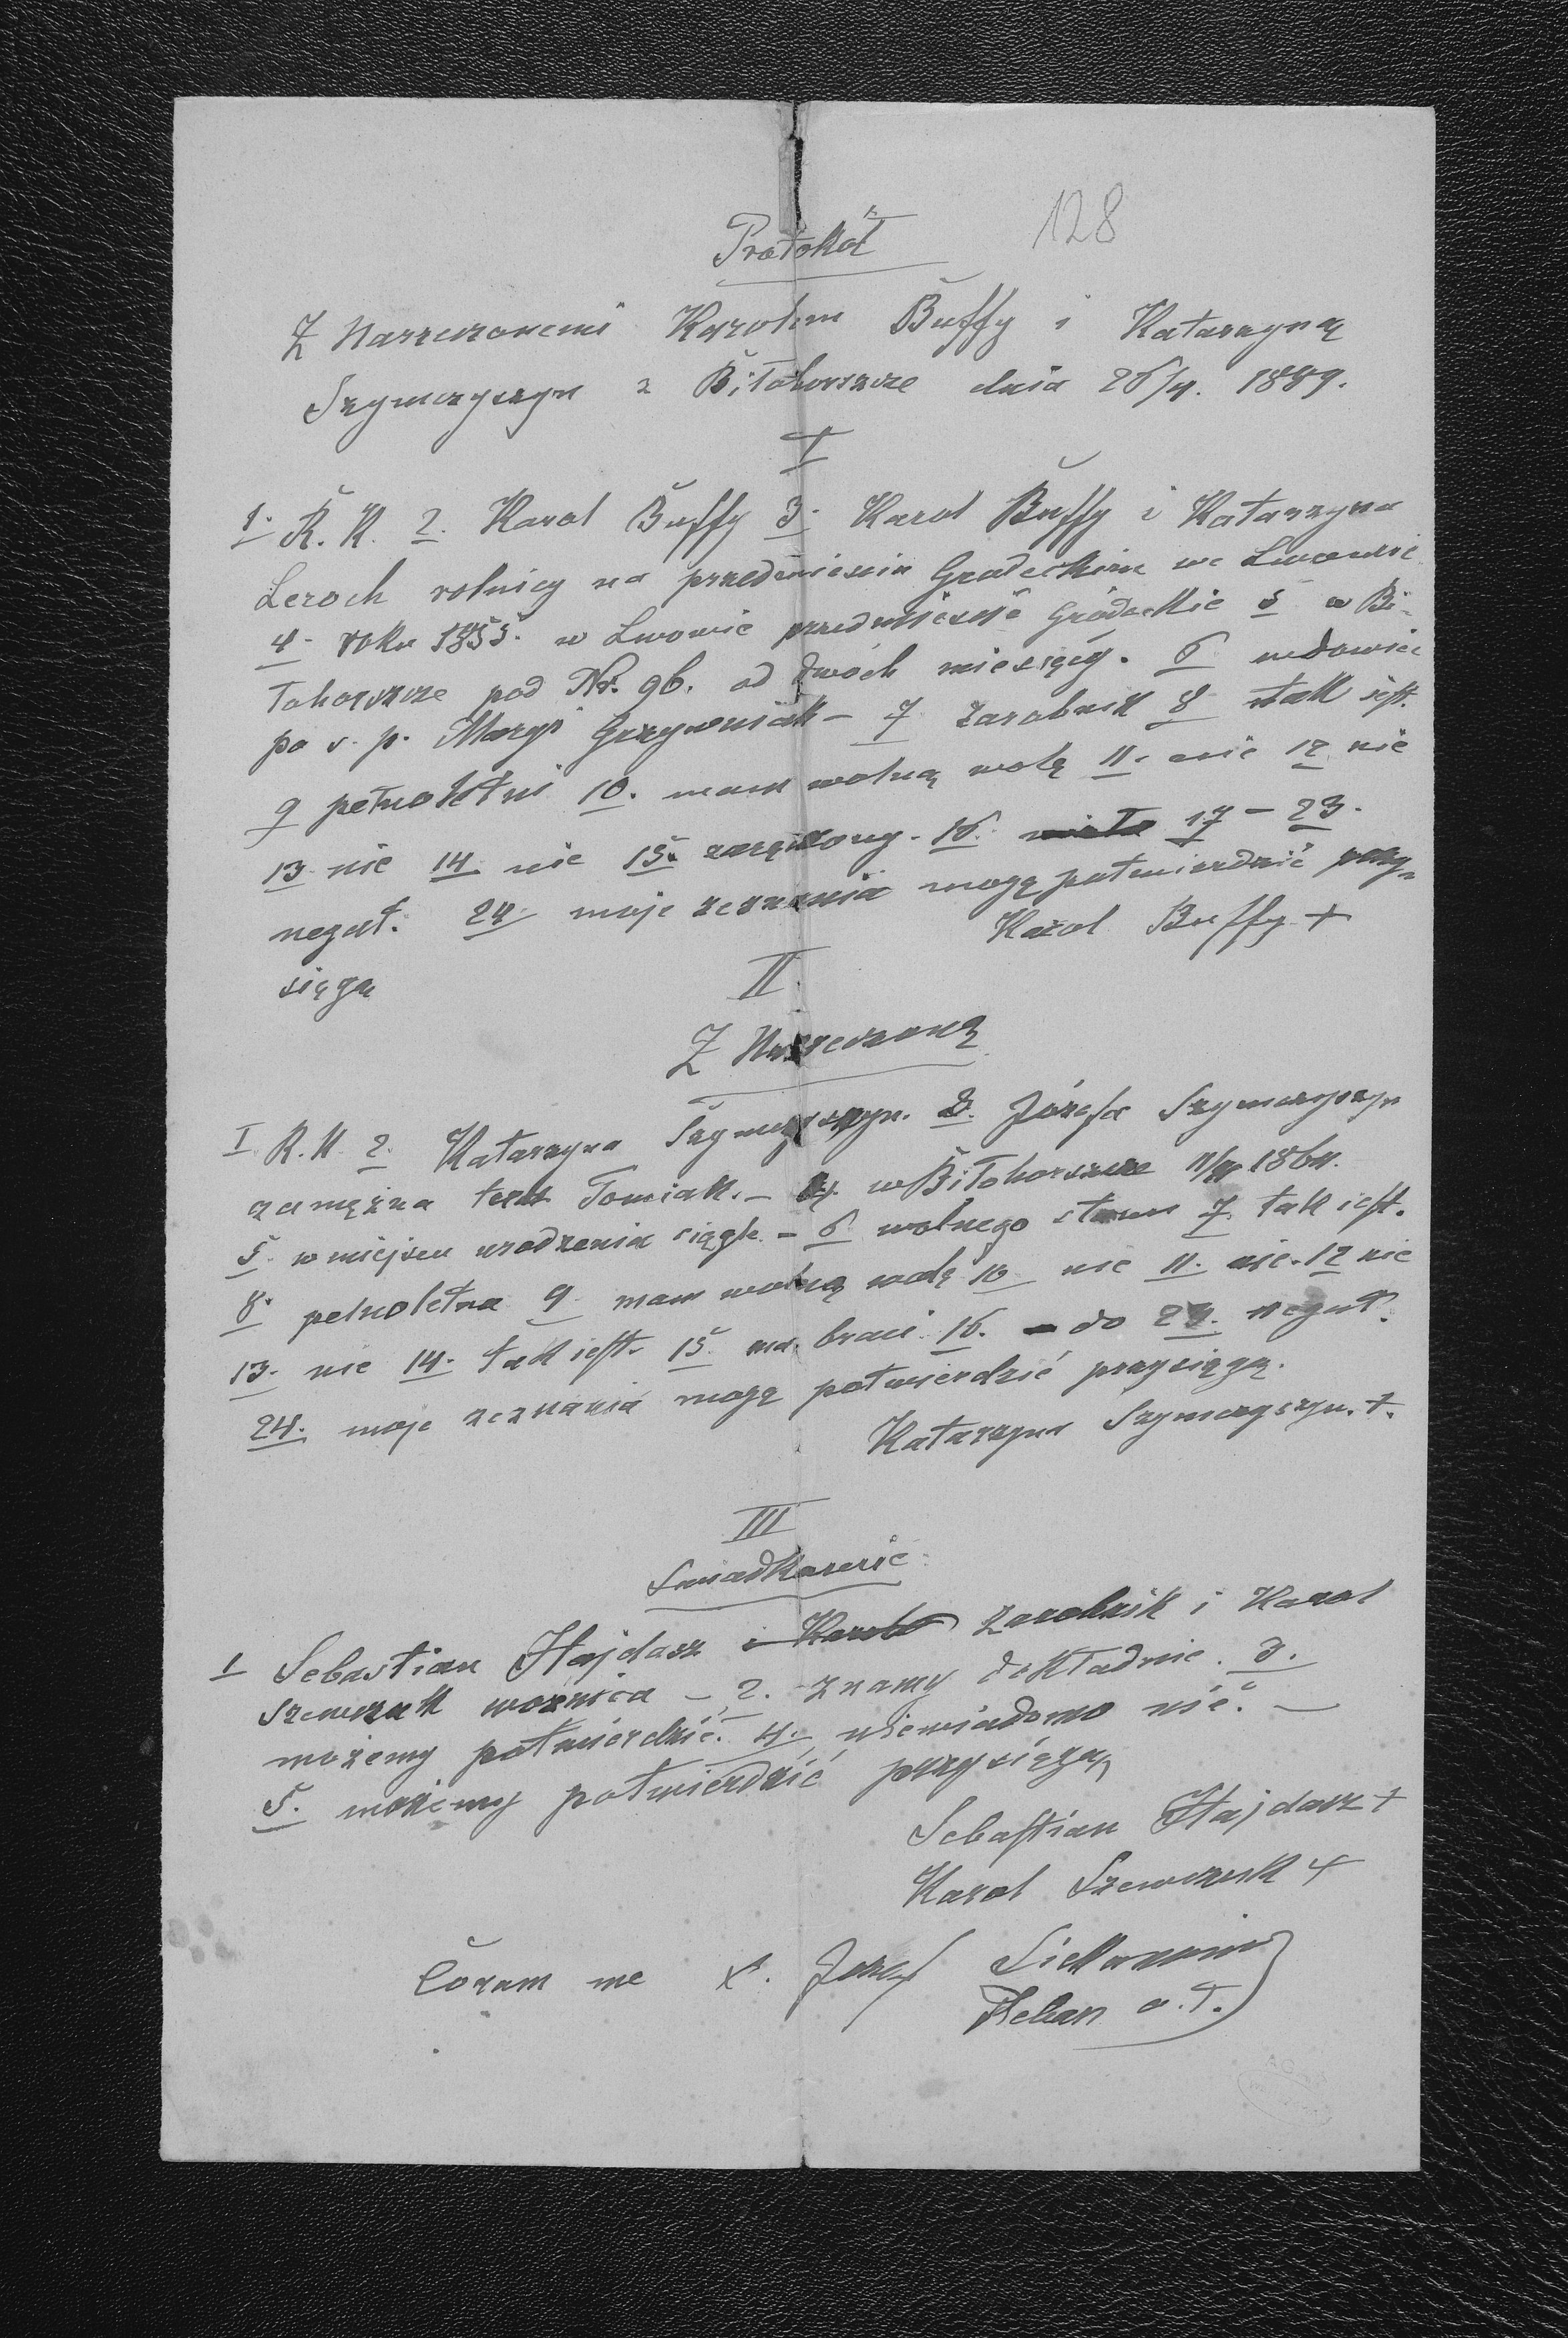 128
Protokół
Z Narzeczonemi Karolem Buffy i Katarzyną
Szymczyszyn z Biłohorszcze dnia 26/4. 1889.
I
1. R. K. 2. Karol Buffy 3. Karol Buffy i Katarzyna
Leroch rolnicy na przedmieściu Gródeckim we Lwowie
4. roku 1855. w Lwowie przedmieście Gródeckie 5 w Bi-
łohorszcze pod Nr. 96. od dwóch miesięcy. 6 wdowiec
po s. p. Maryi Grzywniak – 7 zarobnik 8 tak jest.
9 pełnoletni 10. mam wolną wolę 11. nie 12 nie
13 nie 14 nie 15. 16. 17 – 23.
negat. 24 moje zeznania mogę potwierdzić przy-
sięgą
Karol Buffy +
II
Z Narzeczoną
I R. K. 2. Katarzyna Szymczyszyn. 3. Józefa Szymczyszyn
zamężna teraz Tomiak. – 4. w Biłohorszcze 1864.
5. w miejscu urodzenia ciągle – 6 wolnego stanu 7. tak jest.
8. pełnoletna 9 mam wolną wolę 10 nie 11. nie. 12 nie
13. nie 14. tak jest. 15 braci 16. – do 24. negat.
24. moje zeznania mogę potwierdzić przysięgą.
Katarzyna Szymczyszyn. +.
III
Świadkowie
1 Sebastian Hajdasz i Karol zarobnik i Karol
Szewczuk woźnica – 2. znamy dokładnie. 3.
możemy potwierdzić. 4. niewiadomo nic. –
5. możemy potwierdzić przysięgą
Sebastian Hajdasz +
Karol Szewczuk +
Coram me X. Józef
Pleban o. ł.